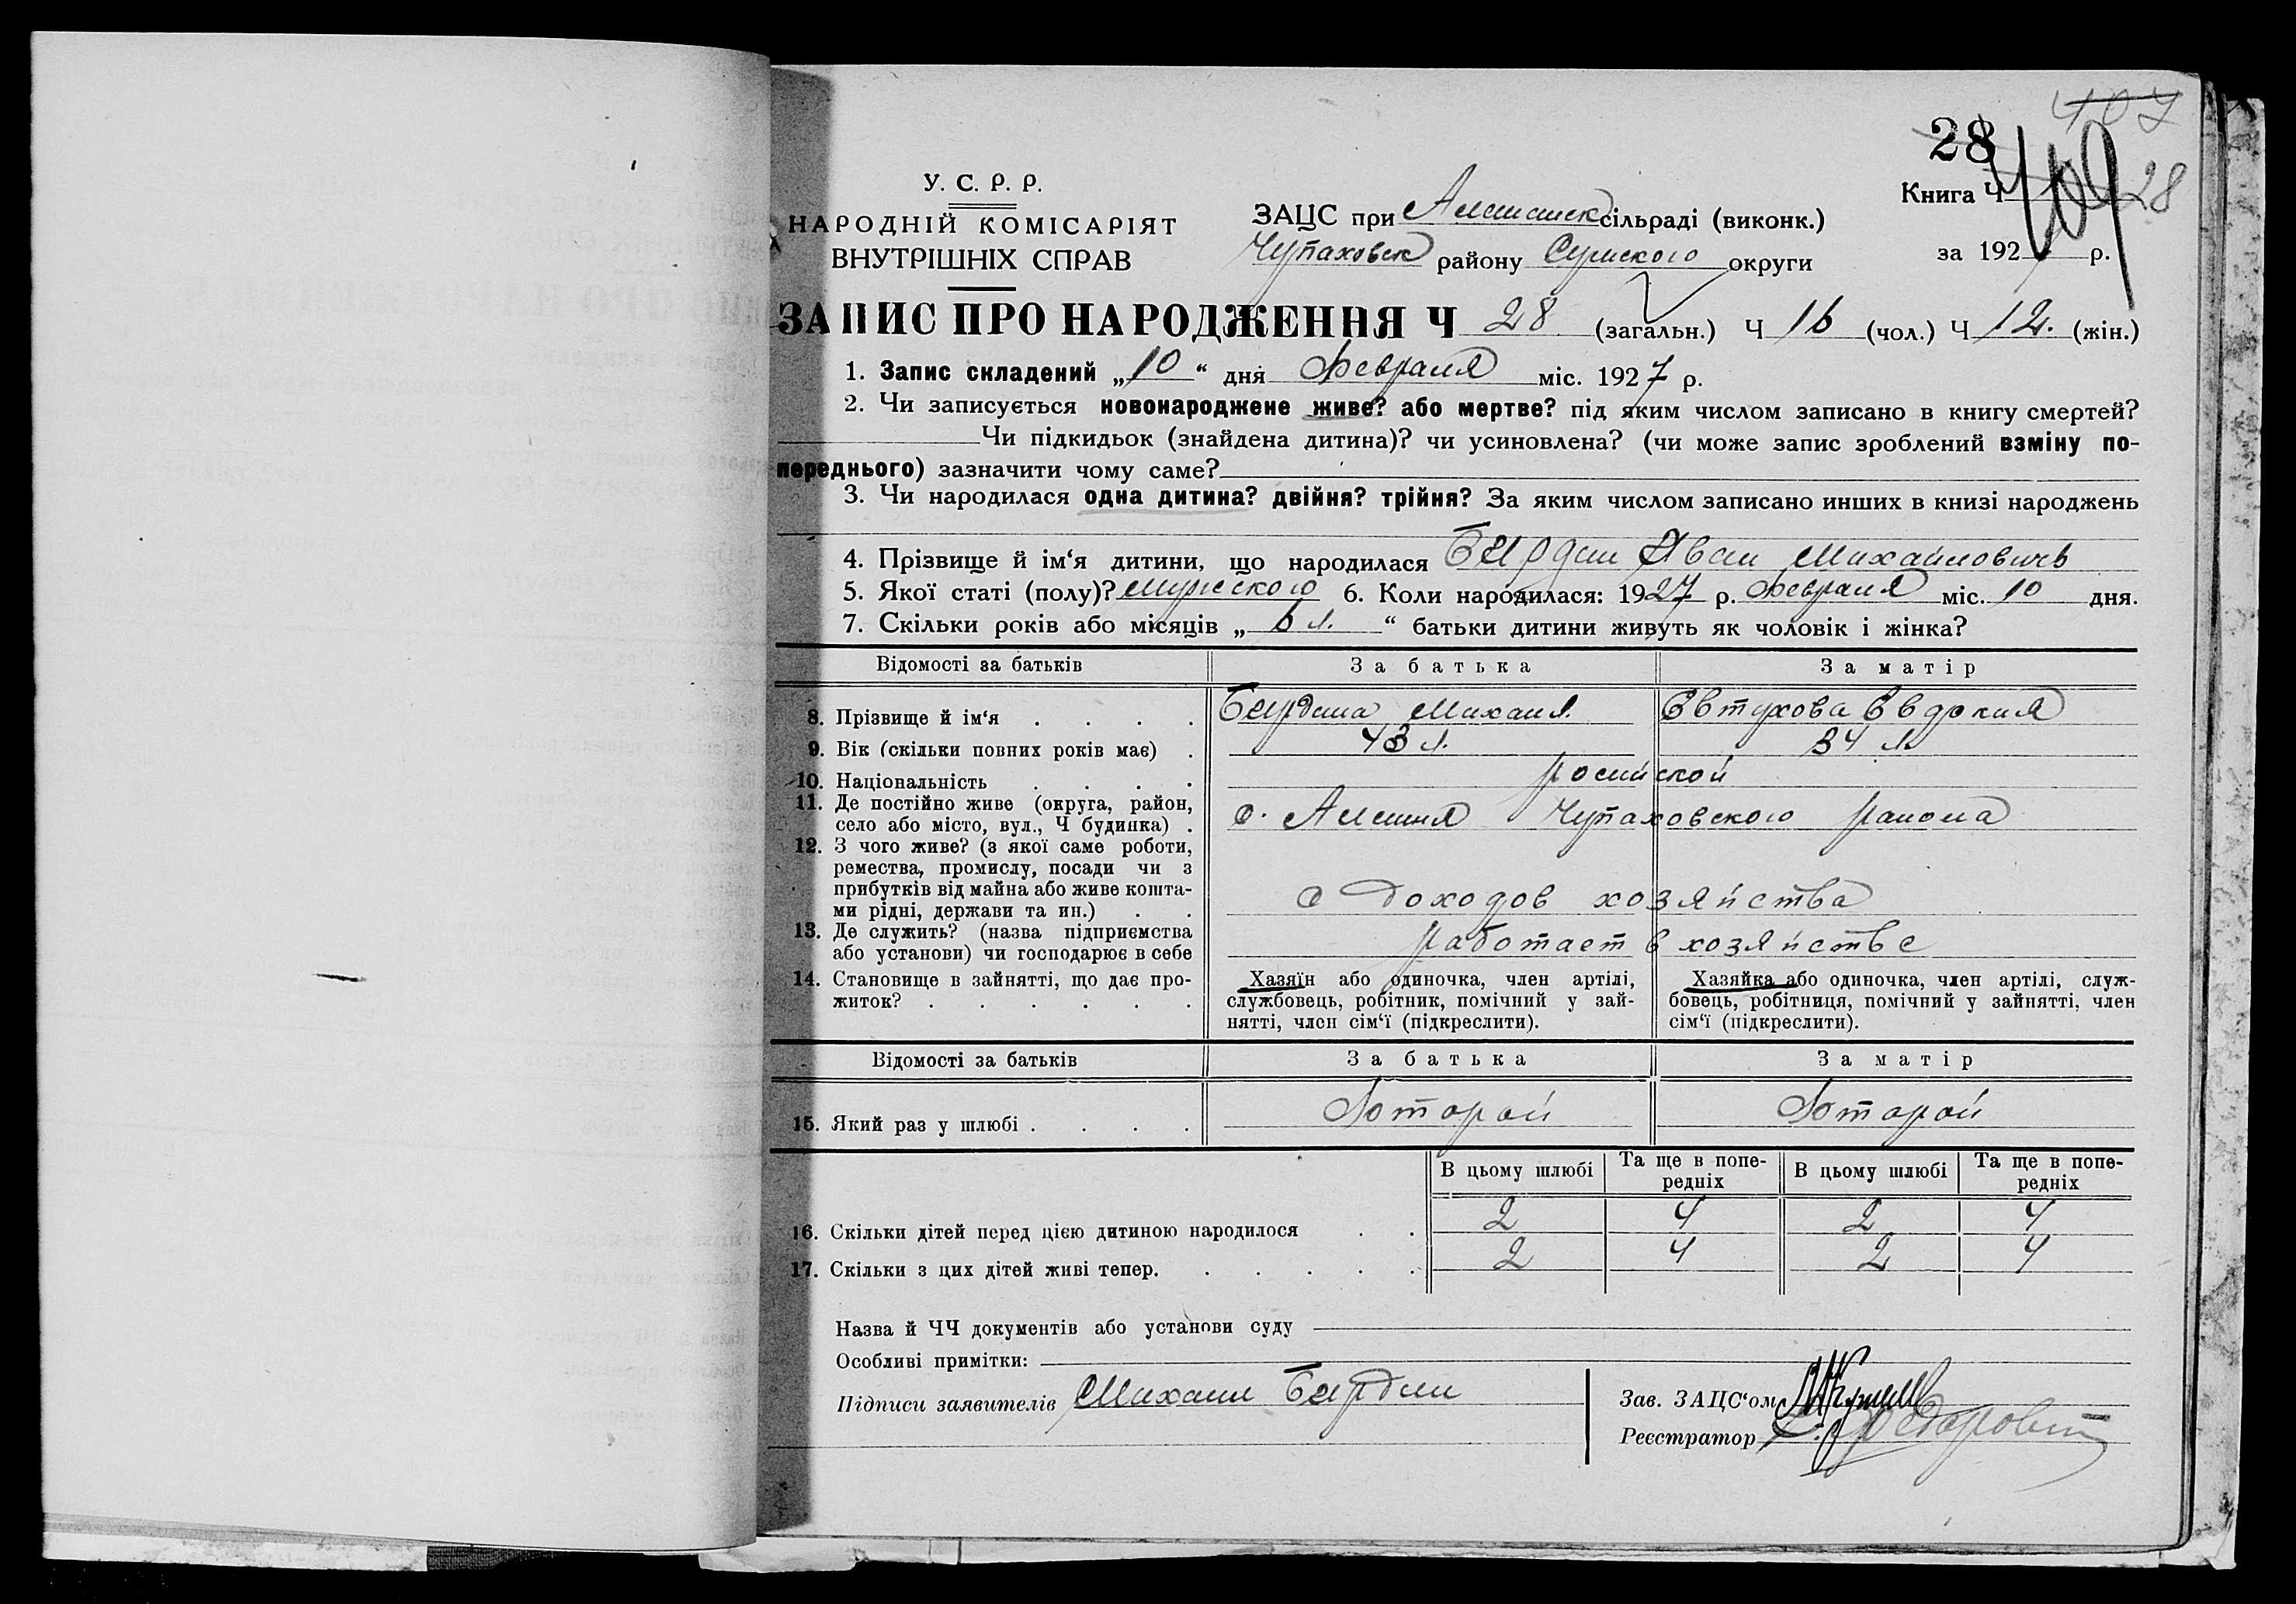 407
28
409
28
У. С. Р. Р.
НАРОДНІЙ КОМІСАРІЯТ
ВНУТРІШНІХ СПРАВ
ЗАЦС при сільраді (виконк.)
Чупаховск району Сумского округи
Книга Ч
за 1927 р.
ЗАПИС ПРО НАРОДЖЕННЯ Ч 28 (загальн.) Ч 16 (чол.) Ч 12. (жін.)
1. Запис складений „10“ дня Февраля міс. 1927 р.
2. Чи записується новонароджене живе? або мертве? під яким числом записано в книгу смертей?
Чи підкидьок (знайдена дитина)? чи усиновлена? (чи може запис зроблений взміну по-
переднього) зазначити чому саме?
3. Чи народилася одна дитина? двійня? трійня? За яким числом записано инших в книзі народжень
4. Прізвище й ім‘я дитини, що народилася Бурдин Иван Михайловичь
5. Якої статі (полу)? мужского 6. Коли народилася: 1927 р. Февраля міс. 10 дня.
7. Скільки років або місяців „ 6 л. “ батьки дитини живуть як чоловік і жінка?
Відомості за батьків За батька За матір
8. Прізвище й ім‘я . . . . Михаил Евтухова Евдокия
9. Вік (скільки повних років має) . 43 л. 34 л.
10. Національність . . . . росийской
11. Де постійно живе (округа, район,
село або місто, вул., Ч будинка) . с. Чупаховского района
12. З чого живе? (з якої саме роботи,
ремества, промислу, посади чи з
прибутків від майна або живе кошта-
ми рідні, держави та ин.) . . с доходов хозяйства
13. Де служить? (назва підприємства
або установи) чи господарює в себе работает в хозяйстве
14. Становище в зайнятті, що дає про-
житок? . . . . . .
Хазяїн або одиночка, член артілі,
службовець, робітник, помічний у зай-
нятті, член сім‘ї (підкреслити).
Хазяйка або одиночка, член артілі, служ-
бовець, робітниця, помічний у зайнятті, член
сім‘ї (підкреслити).
Відомості за батьків За батька За матір
15. Який раз у шлюбі . . . . Второй Второй
В цьому шлюбі Та ще в попе-
редніх В цьому шлюбі Та ще в попе-
редніх
16. Скільки дітей перед цією дитиною народилося . . 2 4 2 4
17. Скільки з цих дітей живі тепер. . . . . . 2 4 2 4
Назва й ЧЧ документів або установи суду
Особливі примітки:
Підписи заявителів Михаил Бурдин
Зав. ЗАЦС‘ом
Реєстратор